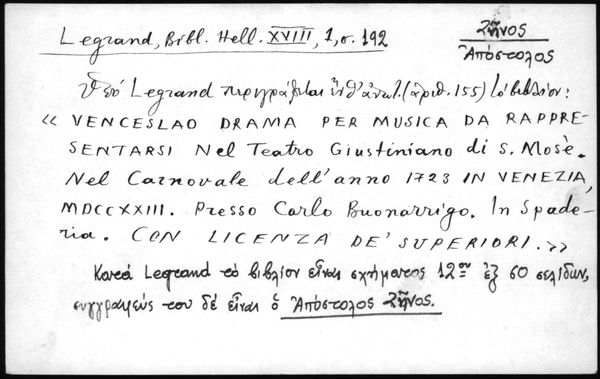 Legrand, Bibl. Hell. XVIII, 1, σ. 192
Ζῆνος
Ἀπόστολος
Ὑπό Legrand περιγράφεται ἐνθ' ἀνωτ. (ἀριθ. 155) τό βιβλίον:
« VENCESLAO DRAMA PER MUSICA DA RAPPRE-
SENTARSI Nel Teatro Giustiniano di S. Mosè.
Nel Carnovale dell'anno 1723 IN VENEZIA,
MDCCXXIII. Presso Carlo Buonarrigo. In Spade-
ria. CON LICENZA DE' SUPERIORI.»
Κατά Legrand τό βιβλίον εἶναι σχήματος 12ον ἐξ 60 σελίδων,
συγγραφεύς του δέ εἶναι ὁ Ἀπόστολος Ζῆνος.